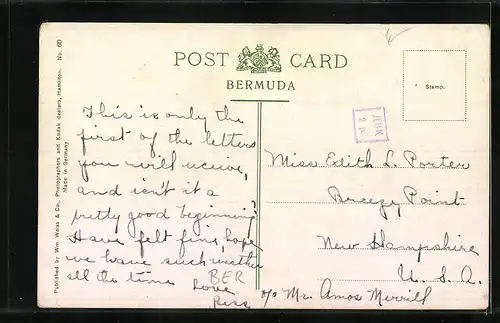 POST CARD
BERMUDA
Stamp.
Published by Wm Weiss & Co., Photographers and Kodak dealers, Hamilton. No. 60
Made in Germany
This is only the
first of the letters
you will receive,
and isn't it a
pretty good beginning?
Have felt fine, hope
we have such weather
all the time
BER
Love
Bess
ABK
2 P.
Miss Edith L. Porter
Breezy Point
New Hampshire
U. S. A.
c/o Mr. Amos Merrill